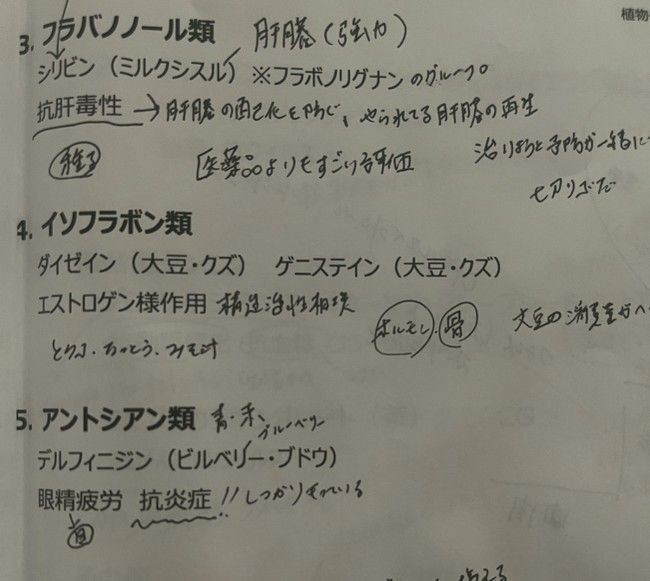 植物
3. フラバノノール類 肝臓(強力)
シリビン（ミルクシスル）※フラボノリグナンのグループ。
抗肝毒性 → 肝臓の酸化を防ぐ、やられてる肝臓の再生
医薬品よりもすごい評価
治りょうと予防が一緒に
4. イソフラボン類
ダイゼイン（大豆・クズ） ゲニステイン（大豆・クズ）
エストロゲン様作用 構造活性相関
ホルモン 骨 大豆の消費量が
とうふ、なっとう、みそ汁
5. アントシアン類 青・赤、
ブルーベリー
デルフィニジン（ビルベリー・ブドウ）
眼精疲労 抗炎症!! しっかりもっている
目